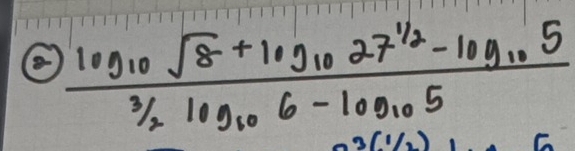 ② log₁₀ √8 + log₁₀ 27^1/2 - log₁₀ 5
3/2 log₁₀ 6 - log₁₀ 5